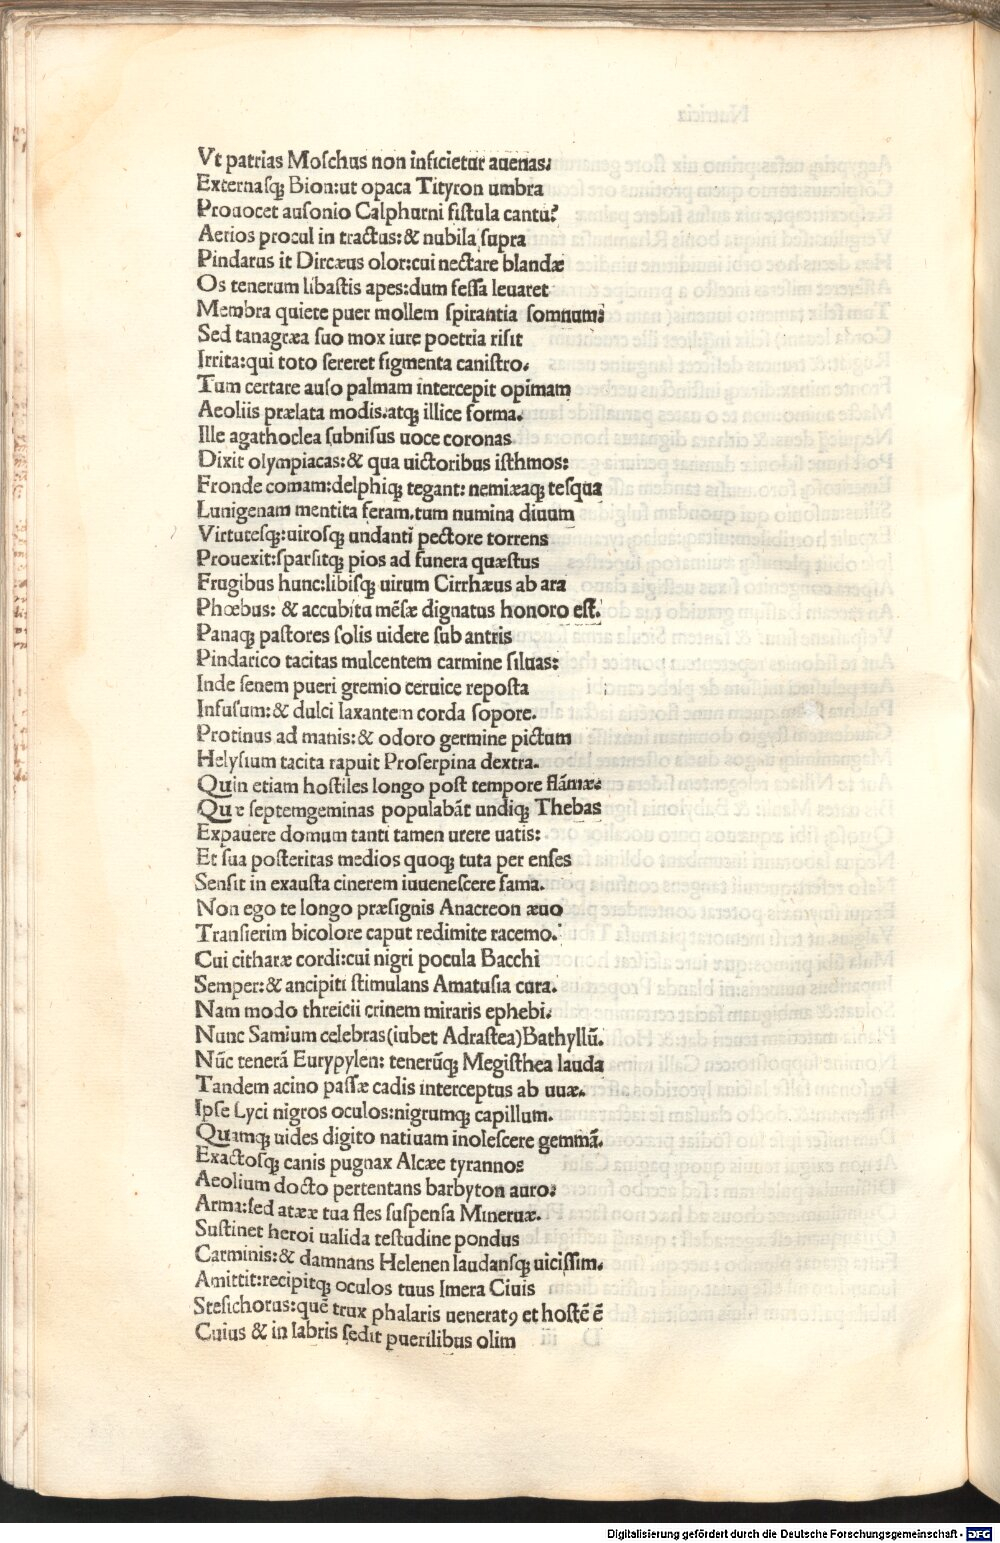 Vt patrias Moſchus non inficietur auenas:
Externaſq; Bion:ut opaca Tityron umbra
Prouocet auſonio Calphurni fiſtula cantu?
Aerios procul in tractus:& nubila ſupra
Pindarus it Dircæus olor:cui nectare blandæ
Os tenerum libaſtis apes:dum feſſa leuaret
Membra quiete puer mollem ſpirantia ſomnum:
Sed tanagræa ſuo mox iure poetria riſit
Irrita:qui toto ſereret figmenta caniſtro.
Tum certare auſo palmam intercepit opimam
Aeoliis prælata modis.atq; illice forma.
Ille agathoclea ſubniſus uoce coronas
Dixit olympiacas:& qua uictoribus iſthmos:
Fronde comam:delphiq; tegant: nemiæaq; teſqua
Lunigenam mentita feram.tum numina diuum
Virtuteſq;:uiroſq; undanti pectore torrens
Prouexit:ſparſitq; pios ad funera quæſtus
Frugibus hunc:libiſq; uirum Cirrhæus ab ara
Phœbus: & accubitu mēſæ dignatus honoro eſt.
Panaq; paſtores ſolis uidere ſub antris
Pindarico tacitas mulcentem carmine ſiluas:
Inde ſenem pueri gremio ceruice repoſta
Infuſum:& dulci laxantem corda ſopore.
Protinus ad manis:& odoro germine pictum
Helyſium tacita rapuit Proſerpina dextra.
Quin etiam hoſtiles longo poſt tempore flāmæ:
Quæ ſeptemgeminas populabāt undiq; Thebas
Expauere domum tanti tamen urere uatis:
Et ſua poſteritas medios quoq; tuta per enſes
Senſit in exauſta cinerem iuueneſcere fama.
Non ego te longo præſignis Anacreon æuo
Tranſierim bicolore caput redimite racemo.
Cui citharæ cordi:cui nigri pocula Bacchi
Semper:& ancipiti ſtimulans Amatuſia cura.
Nam modo threicii crinem miraris ephebi.
Nunc Samium celebras(iubet Adraſtea)Bathyllū.
Nūc tenerā Eurypylen: tenerūq; Megiſthea lauda
Tandem acino paſſæ cadis interceptus ab uuæ.
Ipſe Lyci nigros oculos:nigrumq; capillum.
Quamq; uides digito natiuam inoleſcere gemmā.
Exactoſq; canis pugnax Alcæe tyrannos
Aeolium docto pertentans barbyton auro:
Arma:ſed atææ tua fles ſuſpenſa Mineruæ.
Suſtinet heroi ualida teſtudine pondus
Carminis:& damnans Helenen laudanſq; uiciſſim.
Amittit:recipitq; oculos tuus Imera Ciuis
Steſichorus:quē trux phalaris ueneratꝰ et hoſtē ē
Cuius & in labris ſedit puerilibus olim
Digitalisierung gefördert durch die Deutsche Forschungsgemeinschaft - DFG